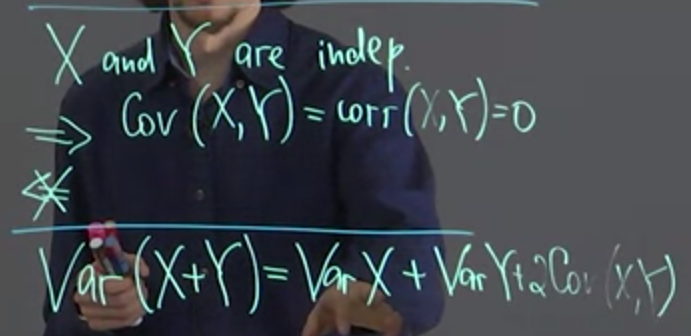 X and Y are indep.
⇒ Cov (X,Y) = corr(X,Y)=0
⇍
Var (X+Y) = Var X + Var Y+2Cov (X,Y)